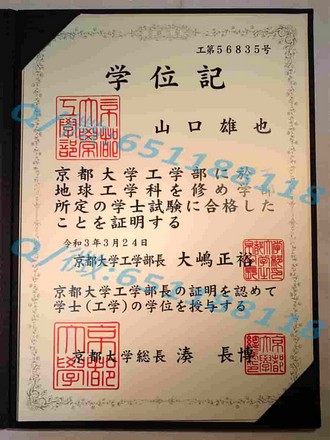 工第56835号
学位記
山口雄也
京都大学工学部に於
地球工学科を修め学
所定の学士試験に合格した
ことを証明する
令和3年3月24日
京都大学工学部長 大嶋正裕
京都大学工学部長の証明を認めて
学士(工学)の学位を授与する
京都大学総長 湊 長博
京都大学工学部
京都大学
Q/微:651188118
Q/微:651188118